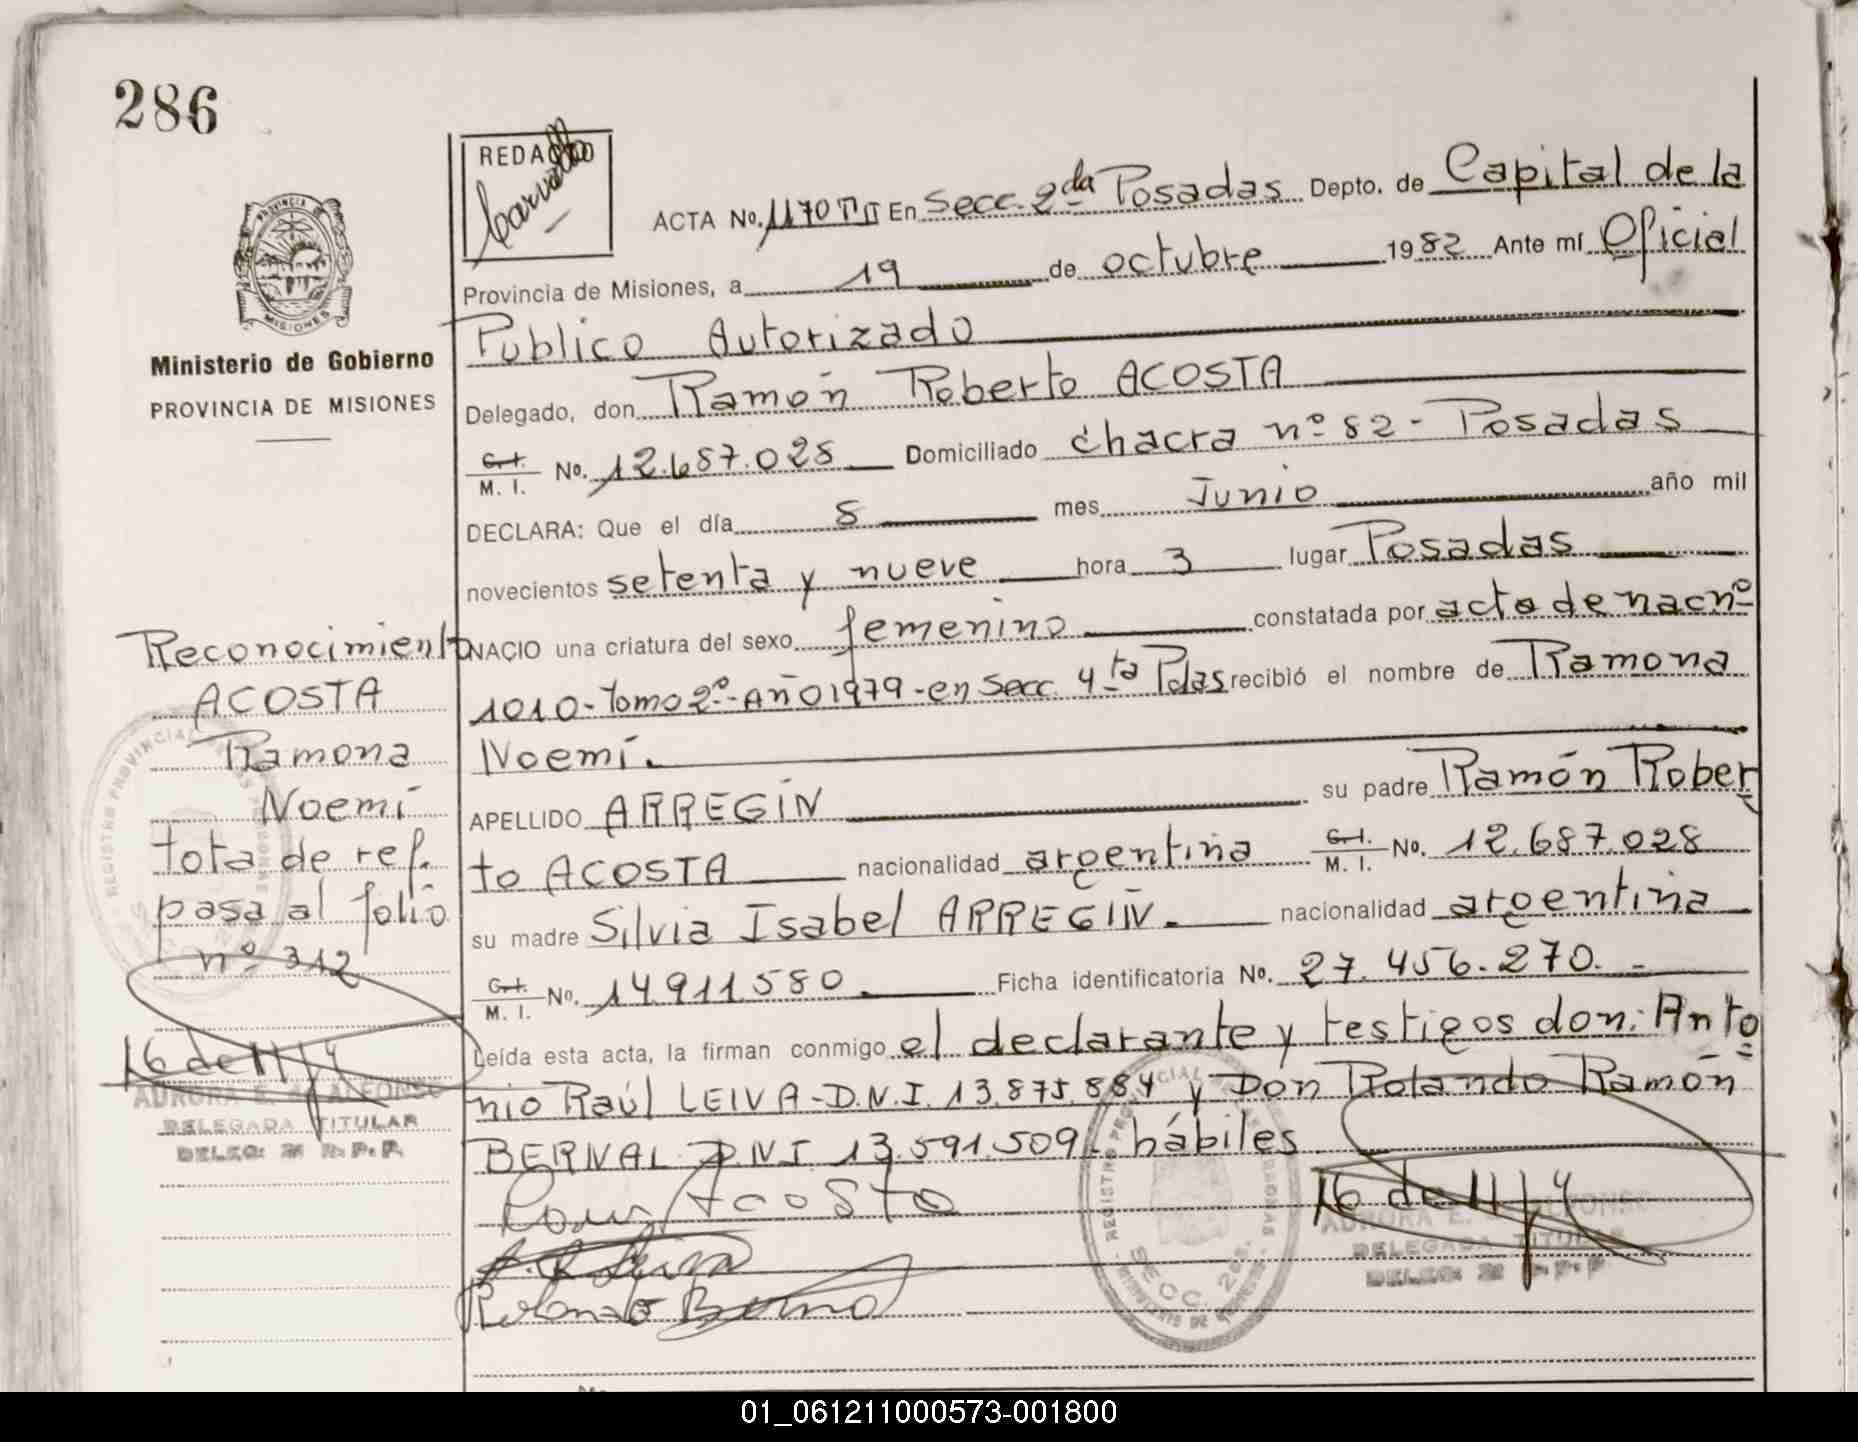 286
REDACTO
Carvallo
ACTA No. 1170 T II En Secc. 2da Posadas Depto. de Capital de la
Provincia de Misiones, a 19 de octubre 1982 Ante mí Oficial
Publico Autorizado
Delegado, don Ramón Roberto ACOSTA
C.I. M. I. No. 12.687.028 Domiciliado chacra nº 82 - Posadas
DECLARA: Que el día 8 mes Junio año mil
novecientos setenta y nueve hora 3 lugar Posadas
NACIO una criatura del sexo femenino constatada por acta de nacnº
1010 - Tomo 2º - Año 1979 - en Secc. 4ta Pdas recibió el nombre de Ramona
Noemí.
APELLIDO ARREGÍN su padre Ramón Rober
to ACOSTA nacionalidad argentina C.I. M. I. No. 12.687.028
su madre Silvia Isabel ARREGÍN. nacionalidad argentina
C.I. M. I. No. 14.911.580. Ficha identificatoria No. 27.456.270. -
Leída esta acta, la firman conmigo el declarante y testigos don: Anto
nio Raúl LEIVA - D.N.I. 13.875.884 y Don Rolando Ramón
BERNAL D.N.I 13.591.509 - hábiles
Acosta
A. R. Leiva
Rolando Bernal
PROVINCIA DE
MISIONES
Ministerio de Gobierno
PROVINCIA DE MISIONES
Reconocimiento
ACOSTA
Ramona
Noemí
tota de ref.
pasa al folio
nº 312
AURORA E. de ALFONSO
DELEGADA TITULAR
DELEG: 2ª R.P.P.
REGISTRO PROVINCIAL DE LAS PERSONAS
SECC. 2da.
AURORA E. de ALFONSO
DELEGADA TITULAR
DELEG: 2ª R.P.P.
01_061211000573-001800